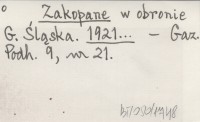 Zakopane w obronie
G. Śląska. 1921... – Gaz.
Podh. 9, nr 21.